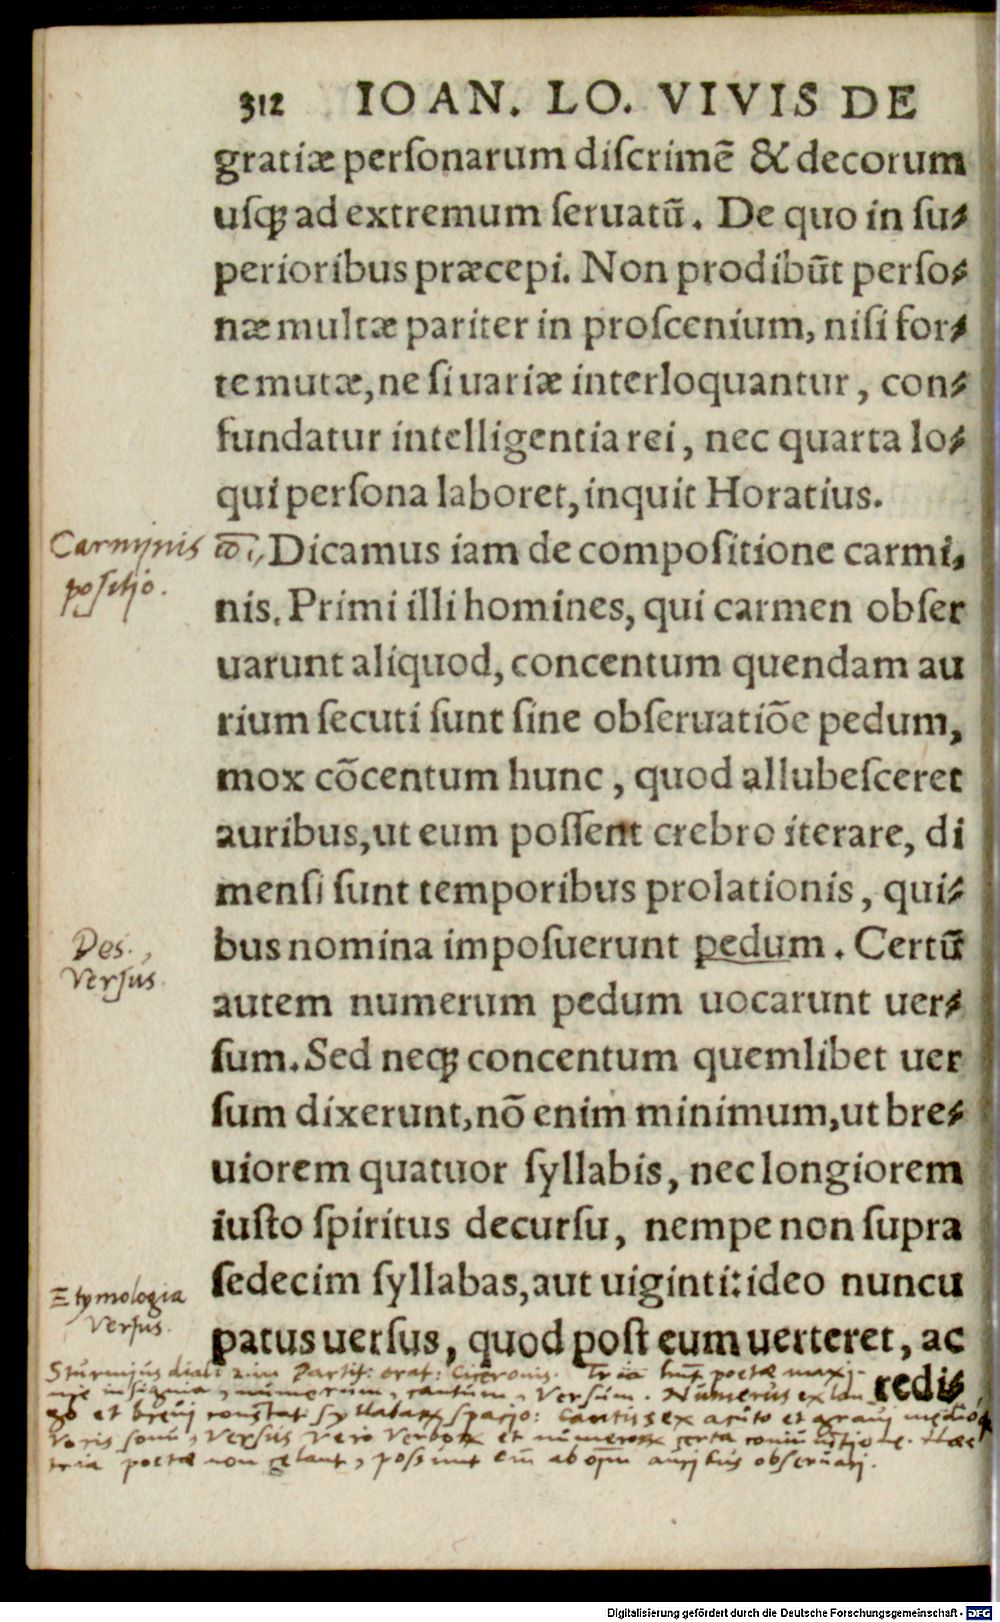 312 IOAN. LO. VIVIS DE
gratiæ personarum discrimē & decorum
usq; ad extremum seruatū. De quo in su-
perioribus præcepi. Non prodibūt perso-
næ multæ pariter in proscenium, nisi for-
te mutæ, ne si uariæ interloquantur, con-
fundatur intelligentia rei, nec quarta lo-
qui persona laboret, inquit Horatius.
Carminis cō
positio.
Dicamus iam de compositione carmi,
nis. Primi illi homines, qui carmen obser
uarunt aliquod, concentum quendam au
rium secuti sunt sine obseruatiōe pedum,
mox cōcentum hunc, quod allubesceret
auribus, ut eum possent crebro iterare, di
mensi sunt temporibus prolationis, qui-
Des.
Versus
bus nomina imposuerunt pedum. Certū
autem numerum pedum uocarunt uer-
sum. Sed neq; concentum quemlibet uer
sum dixerunt, nō enim minimum, ut bre-
uiorem quatuor syllabis, nec longiorem
iusto spiritus decursu, nempe non supra
Etymologia
Versus.
sedecim syllabas, aut uiginti: ideo nuncu
patus uersus, quod post eum uerteret, ac
redis
Sturmius dial: 2. in Partit: orat: Ciceronis. Tria sunt poetæ maxi-
me insignia, numerum, cantum, Versum. Numerus ex lon
go et breui constat syllabarum spacio: Cantus ex acuto et graui medioq;
Vocis sonu, Versus vero Verborum et numerorum certa coniunctione. Haec
tria poetæ non celant, possunt enim ab omnium auribus obseruari.
Digitalisierung gefördert durch die Deutsche Forschungsgemeinschaft - DFG